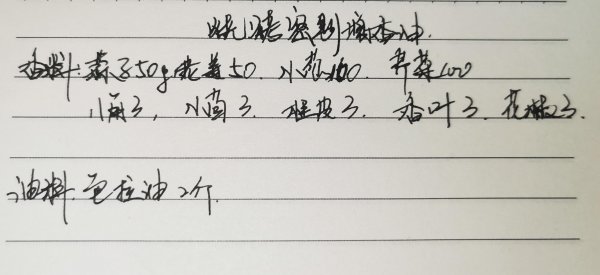 秘制增香油
香料:蒜子50g 老姜50. 小葱100. 芹菜100
八角3, 小茴3. 桂皮3. 香叶3. 花椒3.
油料:色拉油2斤.